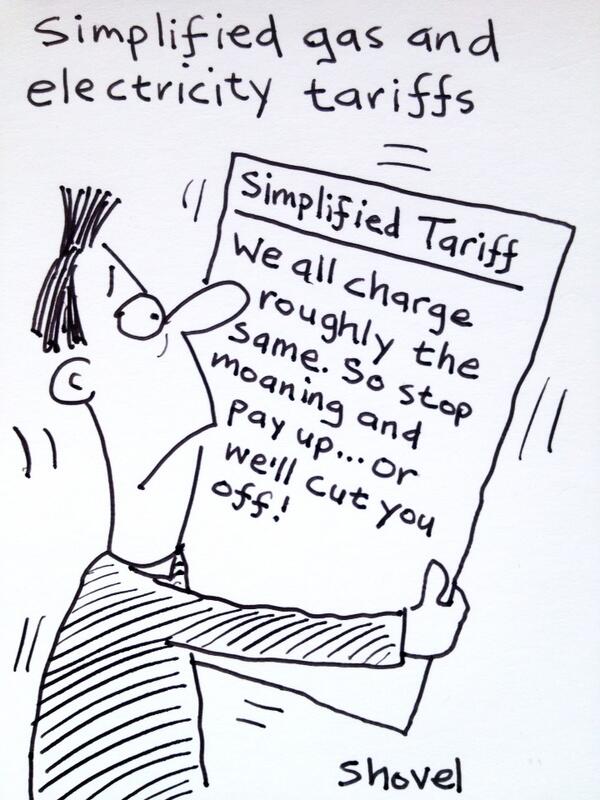 Simplified gas and
electricity tariffs
Simplified Tariff
We all charge
roughly the
same. So stop
moaning and
pay up... or
we'll cut you
off!
Shovel